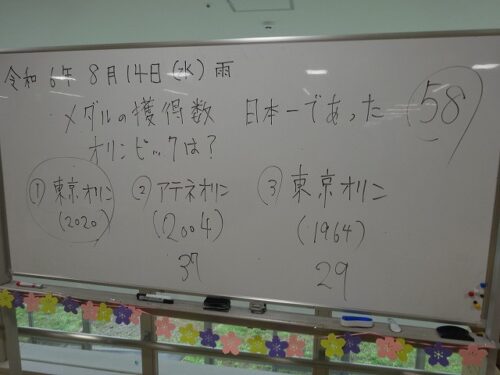 令和 6年 8月14日(水) 雨
メダルの獲得数 日本一であった 58
オリンピックは?
① 東京オリン ② アテネオリン ③ 東京オリン
(2020) (2004) (1964)
37 29